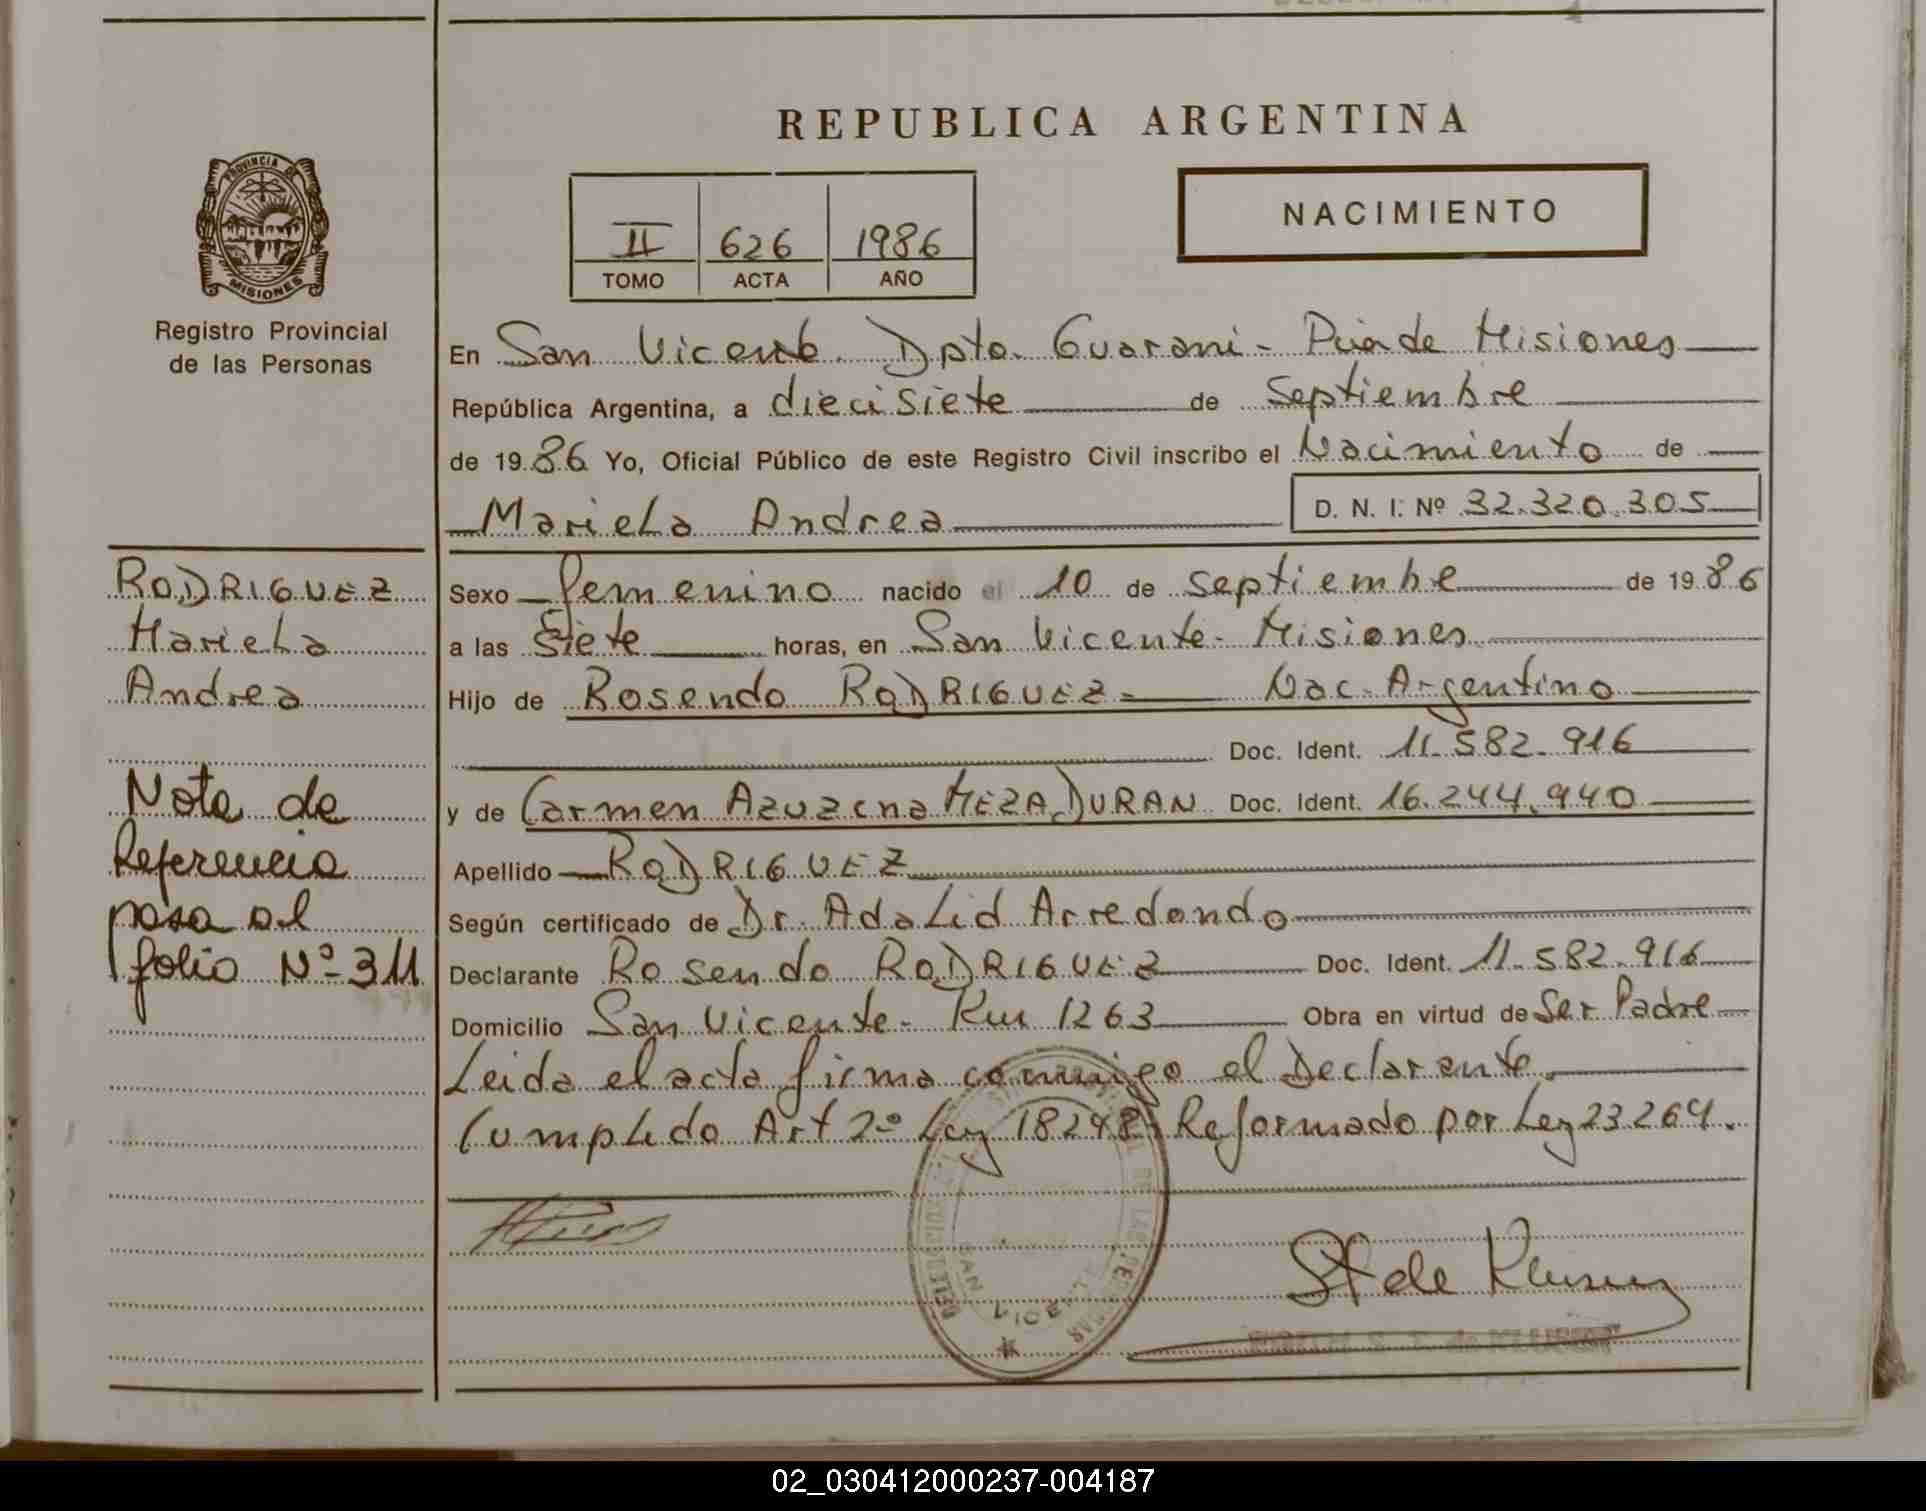 REPUBLICA ARGENTINA
PROVINCIA DE
MISIONES
Registro Provincial
de las Personas
II 626 1986
TOMO ACTA AÑO
NACIMIENTO
En San Vicente Dpto. Guarani - Pcia de Misiones
República Argentina, a diecisiete de septiembre
de 1986 Yo, Oficial Público de este Registro Civil inscribo el Nacimiento de
Mariela Andrea D. N. I. Nº 32.320.305
RODRIGUEZ
Mariela
Andrea
Sexo femenino nacido el 10 de septiembre de 1986
a las siete horas, en San Vicente - Misiones
Hijo de Rosendo RODRIGUEZ - Nac. Argentino
Doc. Ident. 11.582.916
y de Carmen Azuzena MEZA DURAN Doc. Ident. 16.244.940
Apellido RODRIGUEZ
Según certificado de Dr. Adalid Arredondo
Declarante Rosendo RODRIGUEZ Doc. Ident. 11.582.916
Domicilio San Vicente - Km 1263 Obra en virtud de Ser Padre
Leida el acta firma conmigo el Declarante.
Cumplido Art 2º Ley 18248 Reformado por Ley 23264.
Nota de
Referencia
pasa al
folio Nº 311
SAN VICENTE
02_030412000237-004187